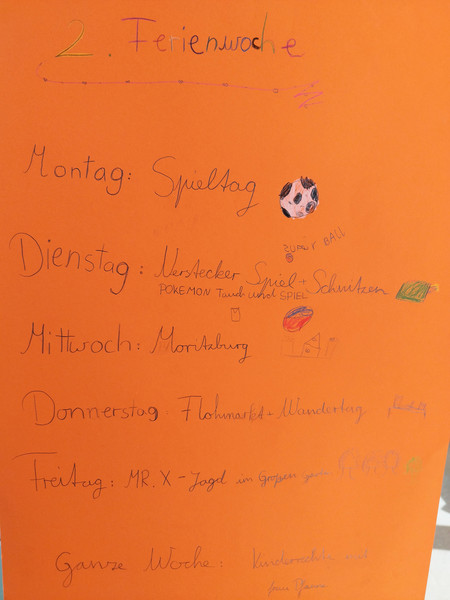 2. Ferienwoche
Montag: Spieltag
ZUBER BALL
Dienstag: Verstecker Spiel + Schnitzen
POKEMON Tausch und SPIEL
Mittwoch: Moritzburg
Donnerstag Flohmarkt + Wandertag
Freitag: MR. X - Jagd im Großen
Ganze Woche: Kinderrechte mit